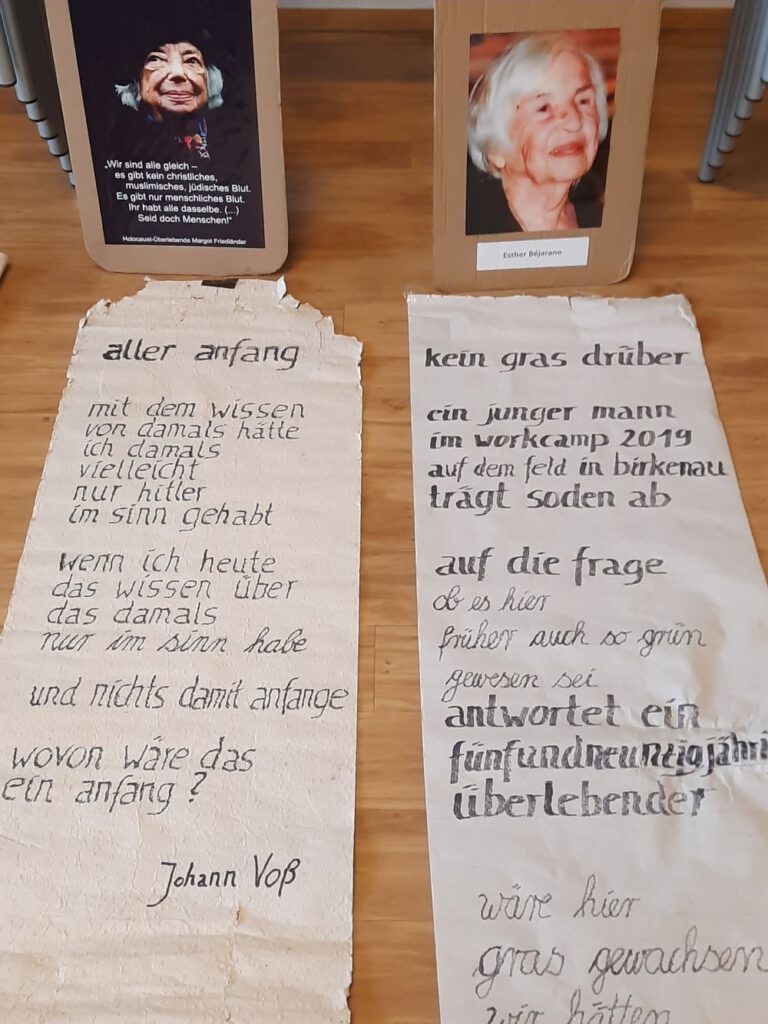 „Wir sind alle gleich –
es gibt kein christliches,
muslimisches, jüdisches Blut.
Es gibt nur menschliches Blut.
Ihr habt alle dasselbe. (...)
Seid doch Menschen!“
Holocaust-Überlebende Margot Friedländer
Esther Béjarano
aller anfang
mit dem wissen
von damals hätte
ich damals
vielleicht
nur hitler
im sinn gehabt
wenn ich heute
das wissen über
das damals
nur im sinn habe
und nichts damit anfange
wovon wäre das
ein anfang ?
Johann Voß
kein gras drüber
ein junger mann
im workcamp 2019
auf dem feld in birkenau
trägt soden ab
auf die frage
ob es hier
früher auch so grün
gewesen sei
antwortet ein
fünfundneunzigjähri
überlebender
wäre hier
gras gewachsen
wir hätten